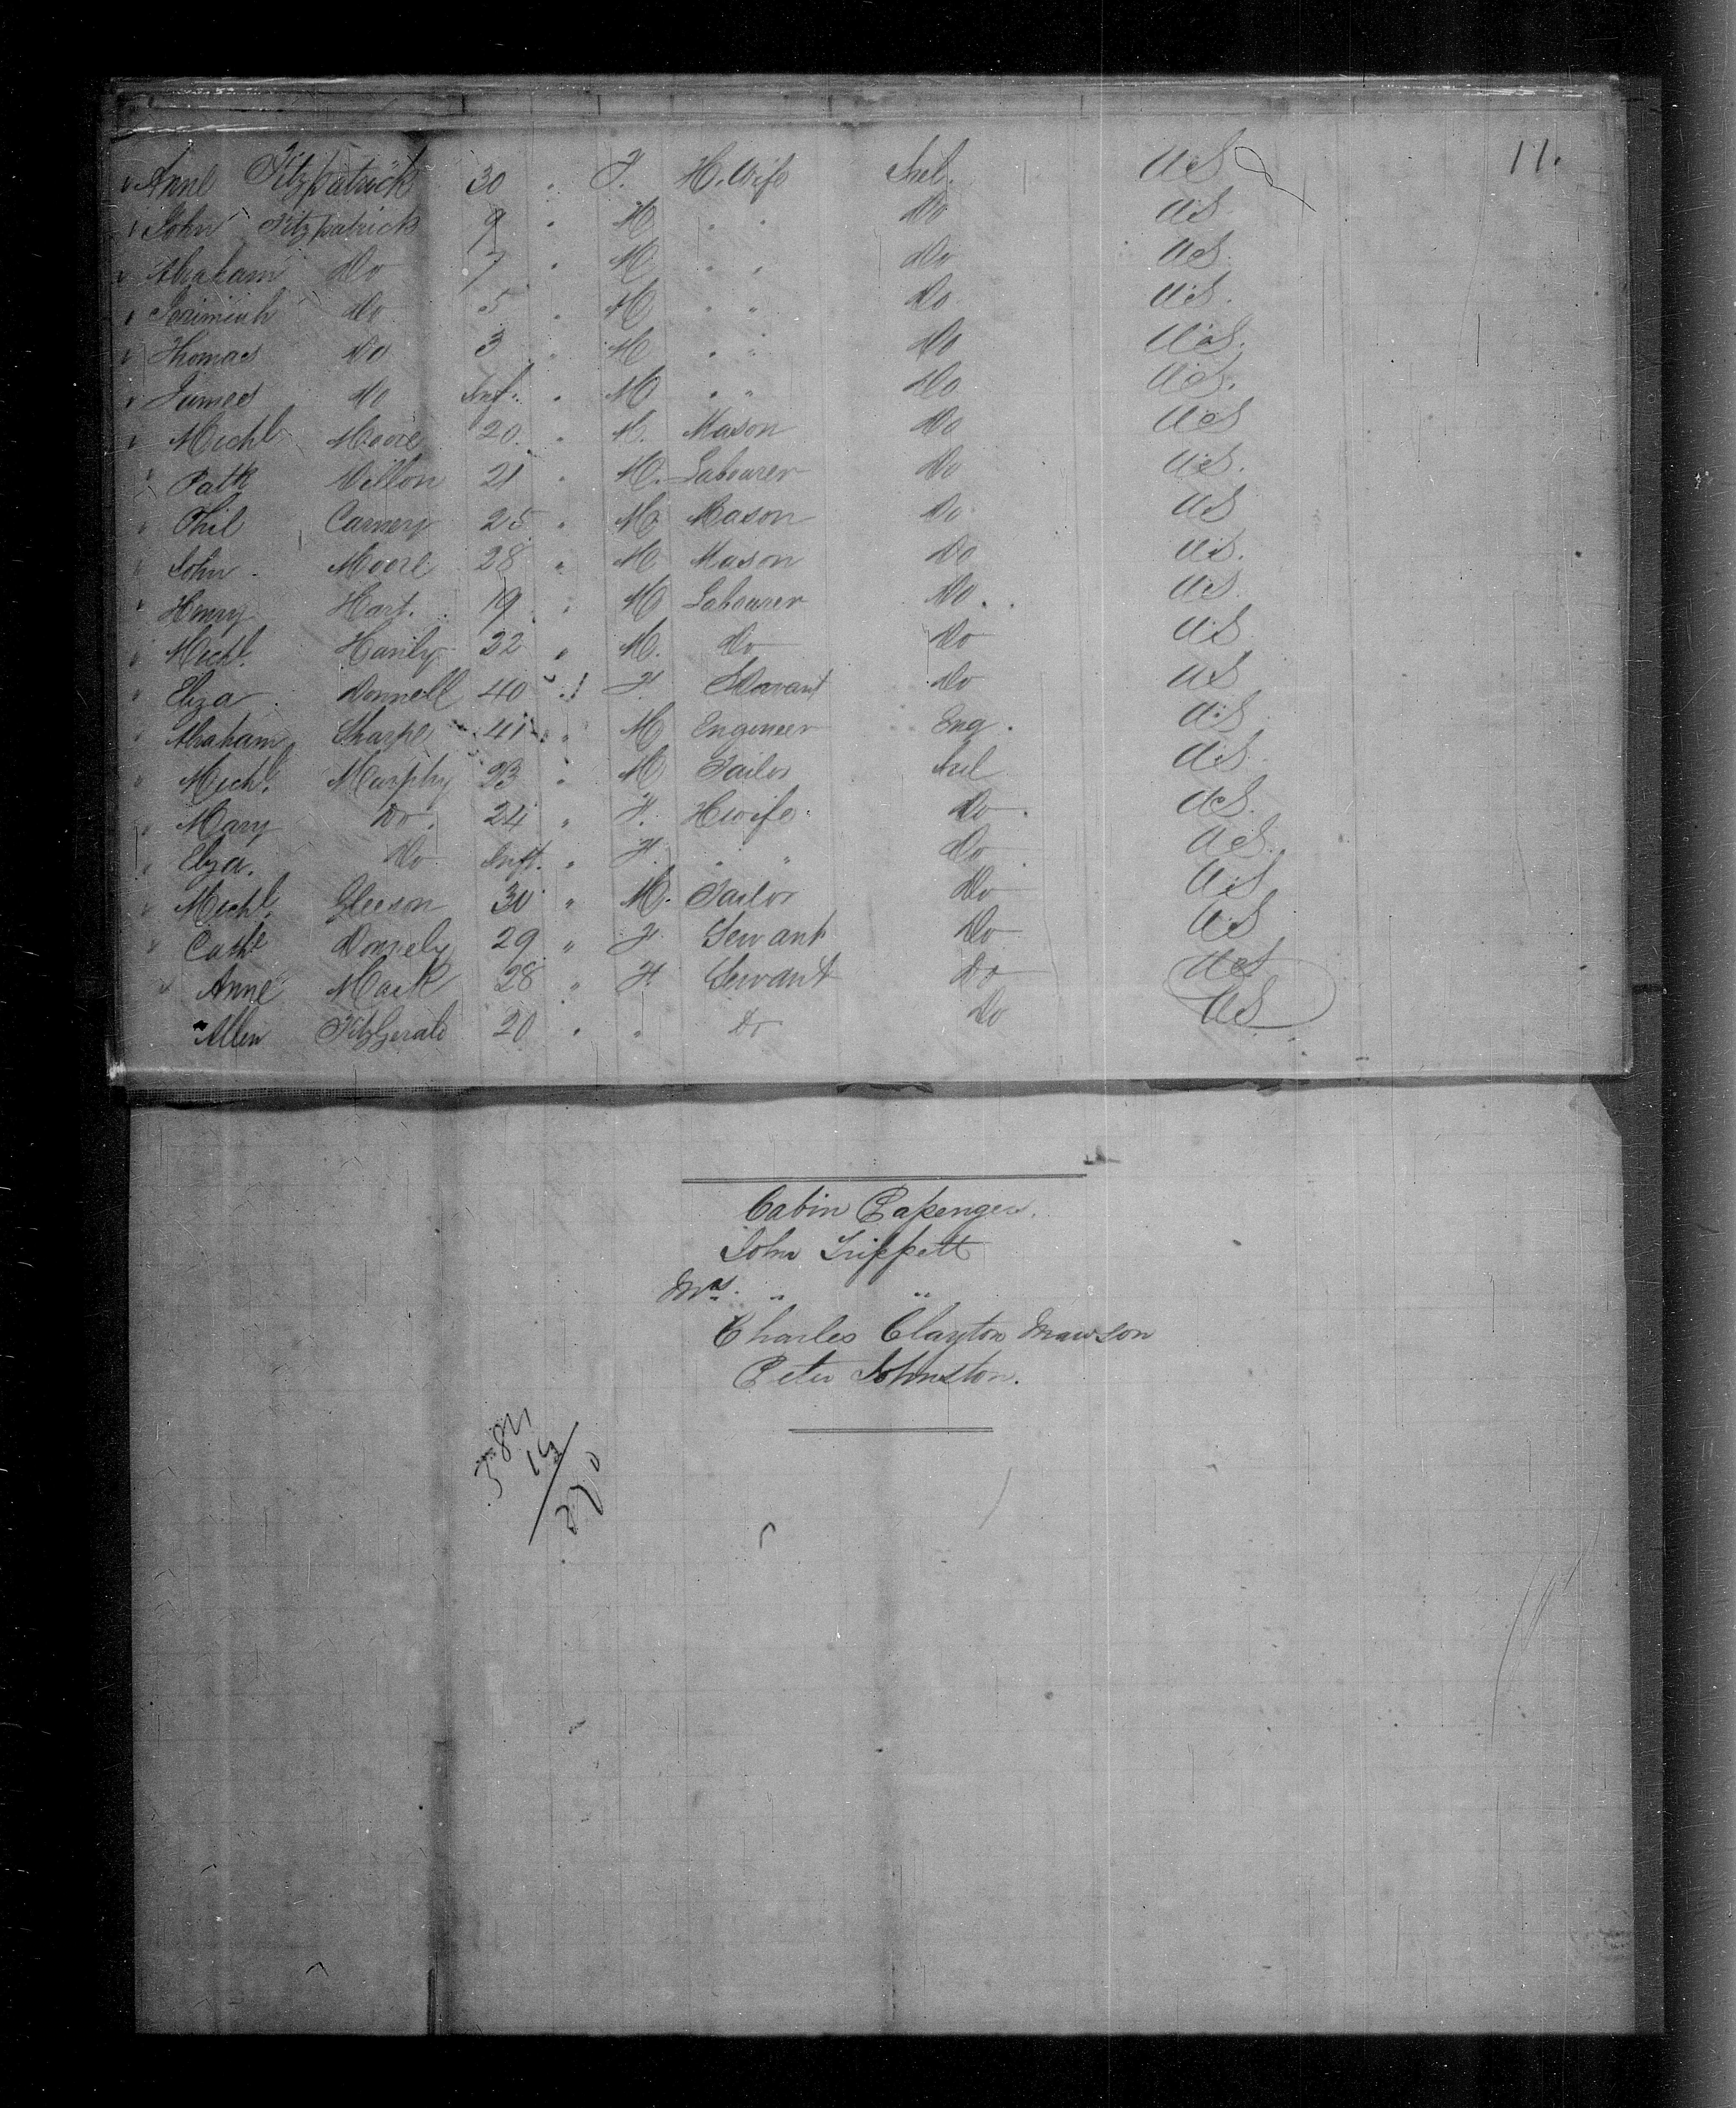 11.
Anne Fitzpatrick 30 " F. H. Wife Irel. US
John Fitzpatrick 9 " M " " Do US
Abraham Do 7 " M " " Do US
Jerimiah Do 5 " M " " Do US.
Thomas Do 3 " M " " Do US.
James Do Inf. " M " " Do US.
Michl Moore 20 " M. Mason Do US
Patk Dillon 21 " M. Labourer Do US.
Phil Carney 25 " M Mason Do US
John Moore 28 " M Mason Do US.
Henry Hart. 19 " M Labourer Do. US
Michl. Hanly 32 " M. Do Do US
Eliza Donnell 40 " F Servant Do US
Abraham Sharpe 41 " M Engineer Eng. US
Michl. Murphy 23 " M Tailor Irel US
Mary Do. 24 " F. Hwife Do. US.
Eliza. Do Inft. " F. " " Do US.
Michl. Gleeson 30 " M. Tailor Do US
Cathe Donnely 29 " F. Servant Do US
Anne Mack 28 " F. Servant Do US
Allen Fitzgerald 20 " " Do Do US
Cabin Passengers.
John Trippett
Mrs. " "
Charles Clayton Mawson
Peter Johnston.